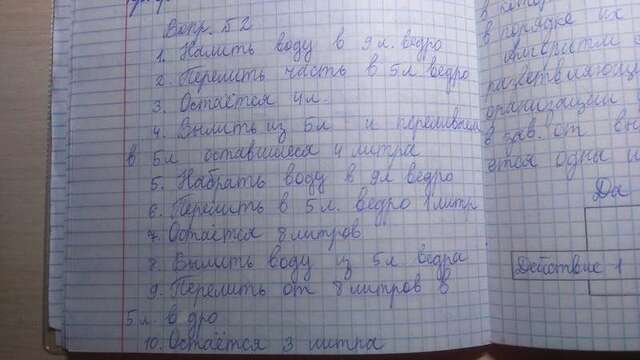 Вопр. 52
1. Налить воду в 9л ведро
2. Перелить часть в 5л ведро
3. Остаётся 4л.
4. Вылить из 5л и переливаем
в 5л оставшиеся 4 литра
5. Набрать воду в 9л ведро
6. Перелить в 5л. ведро 1 литр
7. Остаётся 8 литров
8. Вылить воду из 5л ведра
9. Перелить от 8 литров в
5л. в дро
10. Остаётся 3 литра
в котор
в порядке их
алгоритм
разветвляющ
организации
в зав. от вы
ется одна и
Да
Действие 1